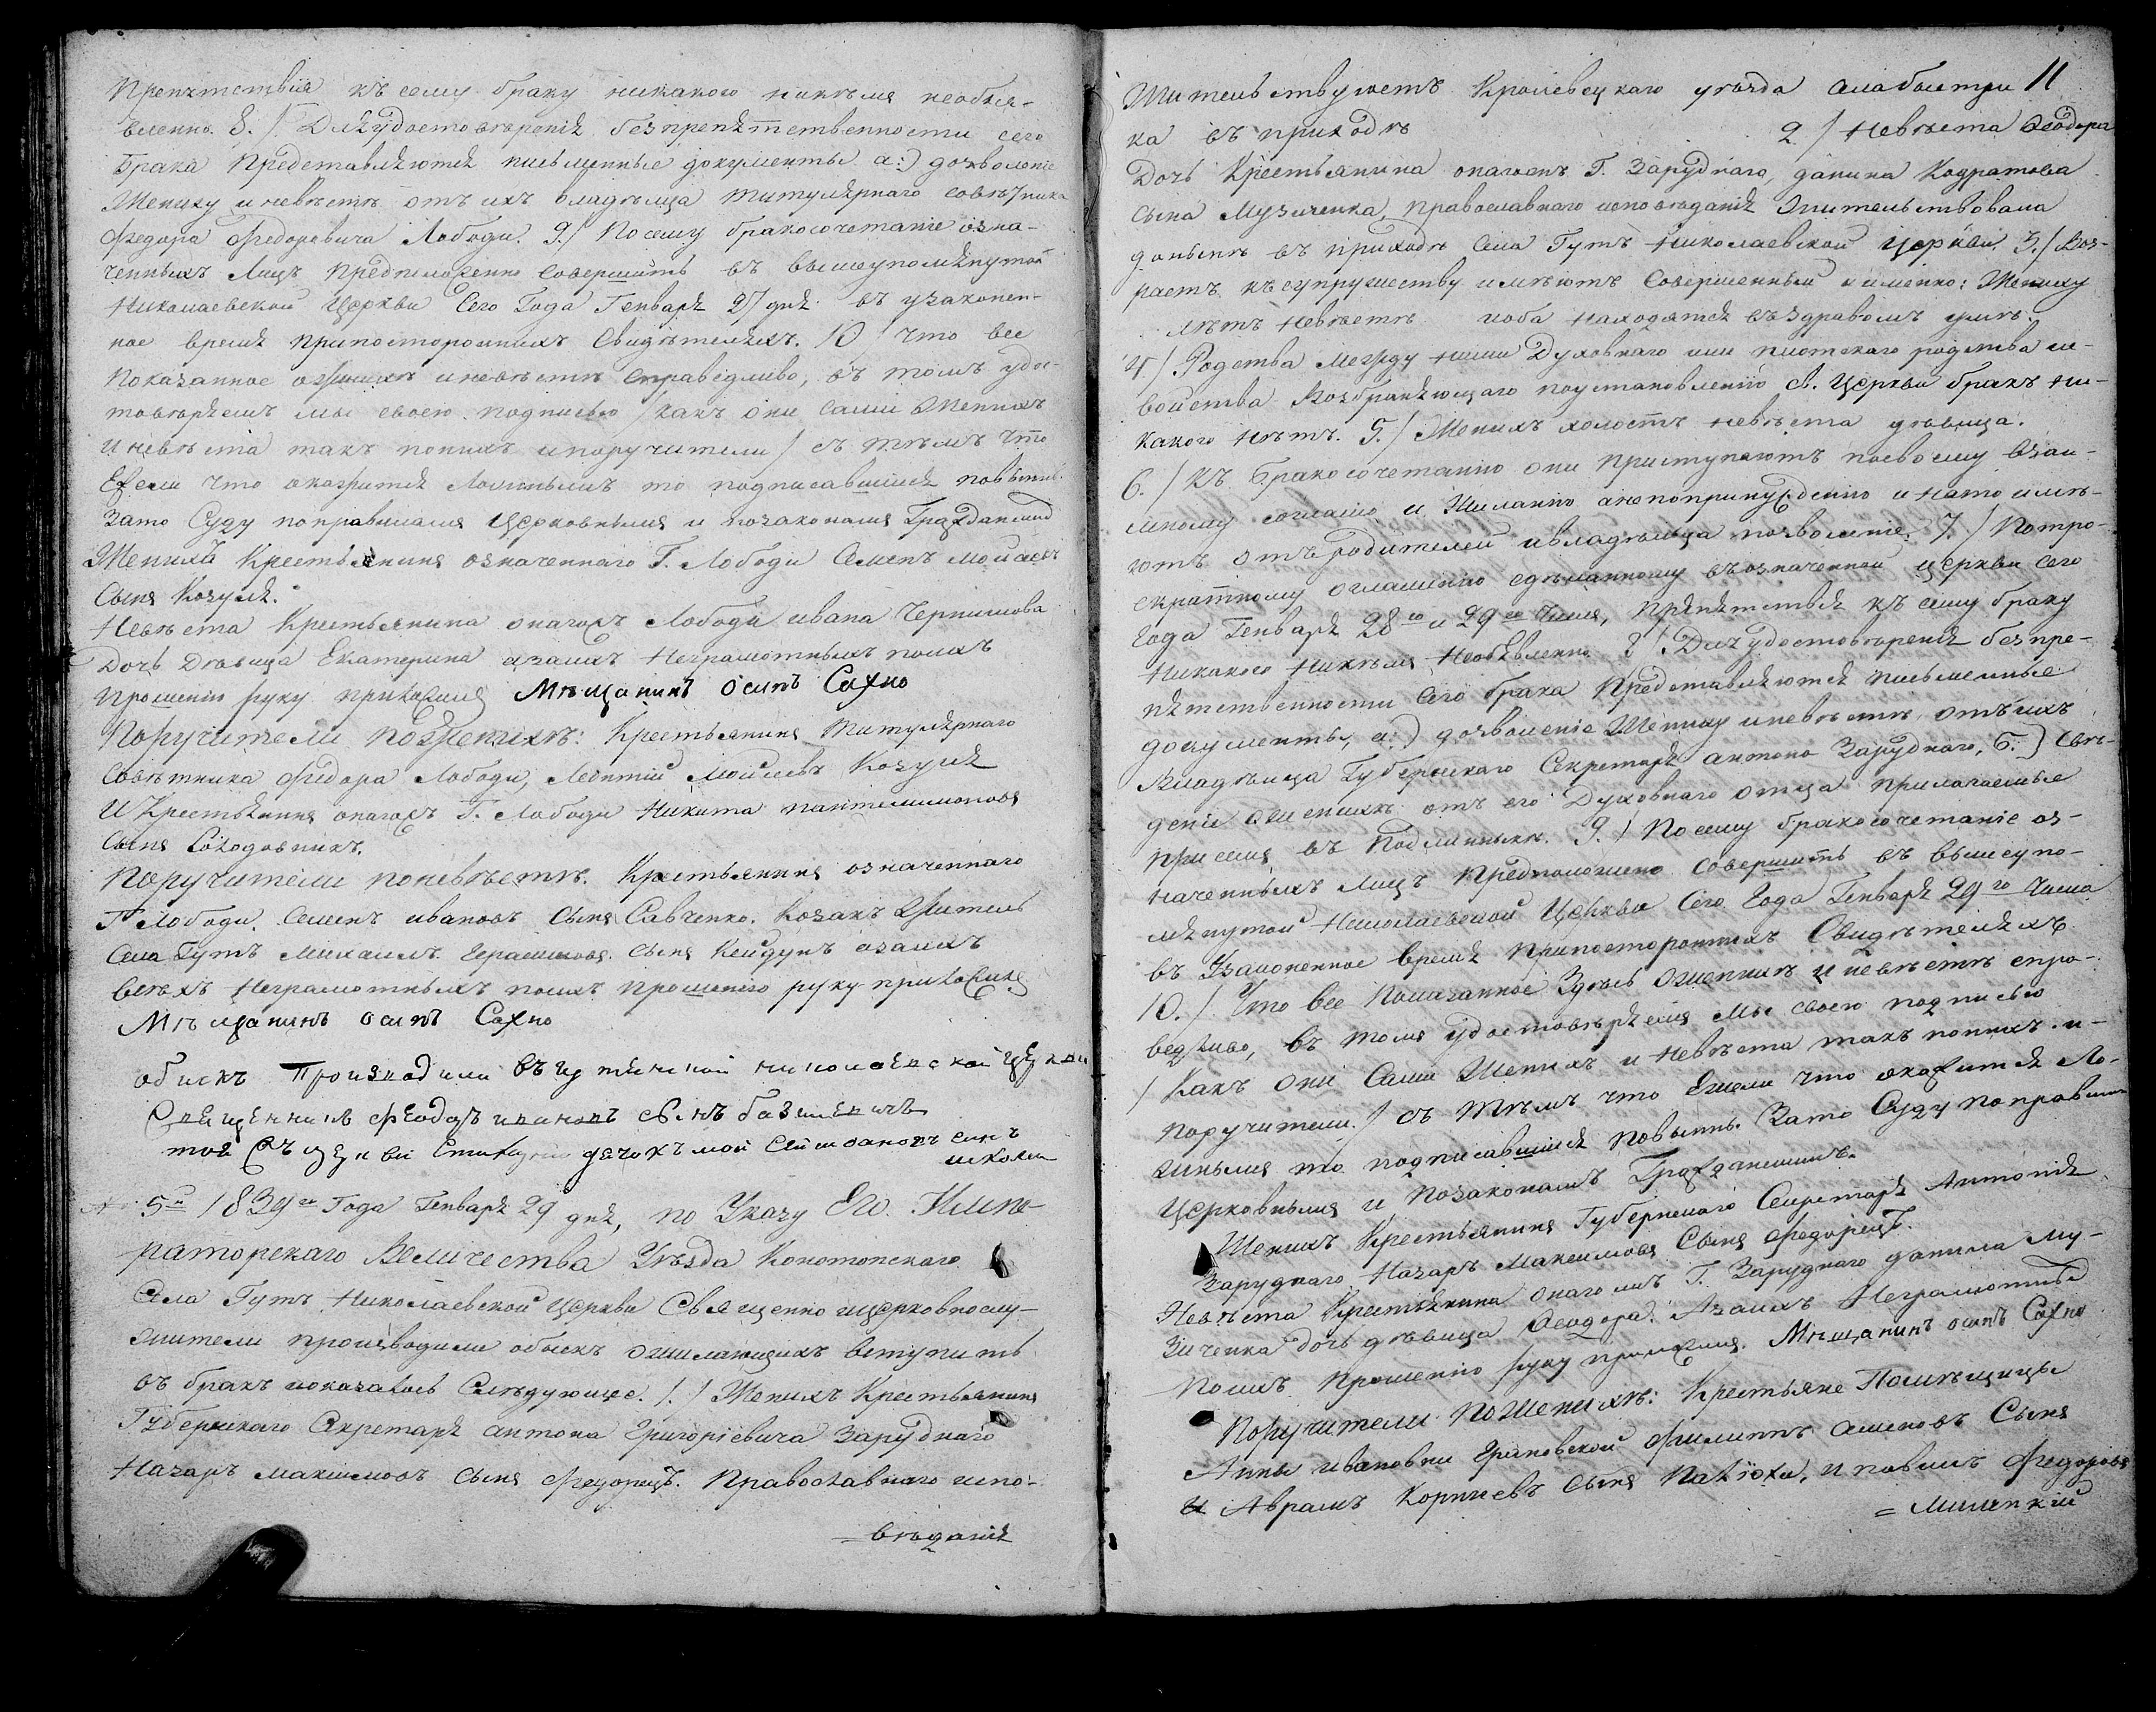 Препятствія къ сему браку никакого никѣмъ необъя-
вленно. 8./ Для удостовѣренія безпрепятственности сего
брака представляются письменные документы а:) дозволеніе
Жениху и невѣстѣ отъ ихъ владѣльца титулярнаго совѣтника
Федора Федоровича Лободы. 9./ По сему бракосочетаніе озна-
ченныхъ лицъ предположенно совершить въ вышеупомянутой
Николаевской Церкви сего Года Генваря 27 дня въ узаконен-
ное время припостороннихъ свидѣтеляхъ. 10/ что все
показанное ожених и невѣстѣ справедливо, въ томъ удос-
товѣряемъ мы своею подписью /какъ они сами Женихъ
и невѣста такъ понихъ и поручители/ съ тѣмъ что
Ежели что окажится ложнымъ то подписавшіися повинны
зато Суду поправиламъ Церковнымъ и позаконамъ Гражданскимъ
Женихъ Крестьянинъ означеннаго Г. Лободи Семенъ Моисеевъ
Сынъ Козуля.
Невѣста Крестьянина онагожъ Лободи ивана Чернишова
Дочь Дѣвица Екатерина азаихъ неграмотныхъ поихъ
прошенію руку приложилъ Мѣщанинъ осипъ Сахно
Поручители поженихѣ: Крестьянинъ Титулярнаго
Совѣтника Федора Лободи, Леонтій Моисеевъ Козуля
И Крестьянинъ онагожъ Г. Лободи Никита пантелимоновъ
Сынъ Солодовникъ.
Поручители поневѣстѣ. Крестьянинъ означеннаго
Г Лободи. Семенъ ивановъ Сынъ Савченко. Козакъ Житель
Села Гутъ Михаилъ Герасимовъ сынъ Кейдунъ азаихъ
всѣхъ неграмотныхъ поихъ прошенію руку приложилъ
Мѣщанинъ осипъ Сахно
обискъ производили въ гутянской николаевской церкви
Священникъ Феодоръ ивановъ сынъ базилевичъ
той Съ церкви дячокъ синъ
5й 1839го Года Генваря 29 дня, по Указу Его Импе-
раторскаго Величества Уѣзда Конотопскаго
Села Гутъ Николаевской Церкви Священно ицерковнослу-
жители производили обыскъ ожилающихъ вступить
въ бракъ показалось слѣдующее. 1./ Женихъ Крестьянинъ
Губернскаго Секретаря антона Григоріевича Заруднаго
Назаръ максимовъ сынъ Федорецъ. Православнаго испо-
= вѣданія
11
Жительствуетъ Кролевецкаго уѣзда
ка въ приходѣ 2./ Невѣста Феодора
Дочь Крестьянина онагожъ Г. Заруднаго, данила Кодратова
сына Музиченка, православнаго исповѣданія жительствовала
донынѣ въ приходѣ села Гутъ Николаевской Церкви. 3./ Воз-
растъ къ супружеству имѣютъ совершенный именно: Жениху
лѣтъ Невѣстѣ иоба находятся въ здравомъ умѣ.
4./ Родства между ними Духовнаго или плотскаго родства и с-
войства возбраняющаго поустановленію св. Церкви бракъ ни-
какого нѣтъ. 5./ Женихъ холостъ невѣста дѣвица.
6./ Къ Бракосочетанію они приступаютъ посвоему взаи-
мному согласію и Желанію анепопринужденію и нато имѣ-
ютъ отъ родителей ивладѣльца позволеніе. 7./ Потро-
екратному оглашенію сдѣланному въозначенной церкви сего
Года Генваря 28го и 29го Числъ, препятствія къ сему браку
никакого никѣмъ необявленно 8/. Для удостовѣренія безпре-
пятственности сего брака представляются письменные
документы, а:) дозволеніе Жениху и невѣстѣ отъ ихъ
владѣльца Губернскаго Секретаря антона Заруднаго, б:) Свѣ-
деніе ожених отъ его Духовнаго отца прилагаемые
при семъ въ Подлинникѣ. 9./ По сему бракосочетаніе оз-
наченныхъ лицъ предположено совершить въ вышеупо-
мянутой Николаевской Церкви Сего Года Генваря 29го Числа
въ Узаконенное время припостороннихъ Свидѣтеляхъ
10./ Что все показанное здѣсь оженихѣ и невѣстѣ спра-
ведливо, въ томъ удостовѣряемъ мы своею подписью
/ Какъ они сами Женихъ и Невѣста такъ понихъ и-
поручители./ съ тѣмъ что Ежели что окажится ло-
жнымъ то подписавшіися повинны Зато Суду поправиламъ
Церковнымъ и Позаконамъ Гражданскимъ.
Женихъ Крестьянинъ Губернскаго Секретаря Антонія
Заруднаго Назаръ Максимовъ Сынъ Федорецъ.
Невѣста Крестьянина онагожъ Г. Заруднаго данила Му-
зиченка дочь дѣвица Феодора. Азаихъ Неграмотныхъ
Поихъ прошенію руку приложилъ. Мѣщанинъ осипъ Сахно
Поручители поЖенихѣ: Крестьяне Помѣщицы
Анны ивановни Грановской Филиппъ Семеновъ Сынъ
и Аврамъ Корнѣевъ Сынъ Патюха, и павелъ Федоровъ
=